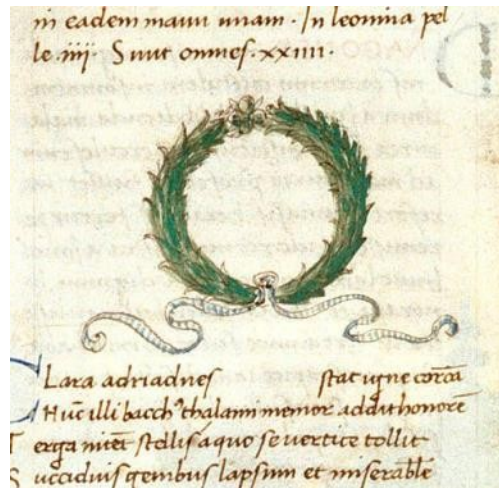 in eadem manu unam. In leonina pel
le .iiii. Sunt omnes .xxiiii.
Clara adriadnes stat igne corōa
Hūc illi bacchꝰ thalami memor addit honorē
Terga nitēt stellis a quo se vertice tollit
Succiduis genibus lapsum et miserabile